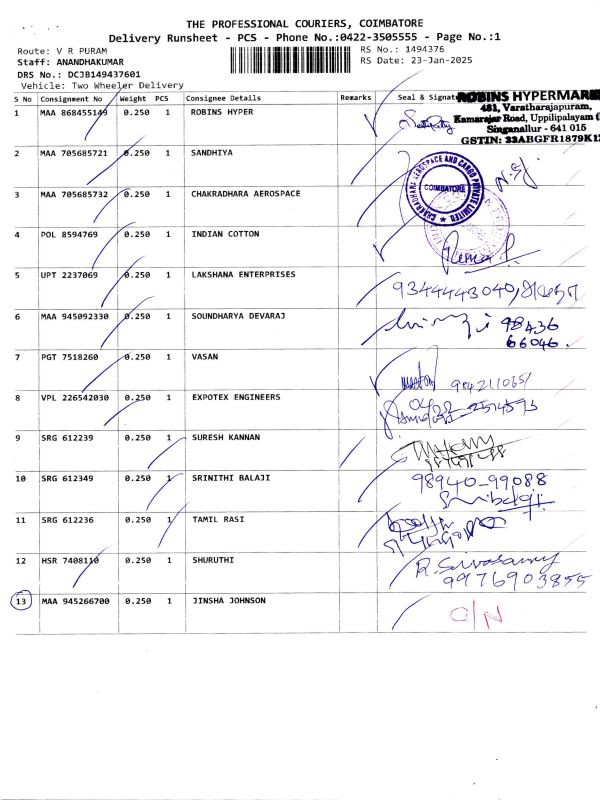 THE PROFESSIONAL COURIERS, COIMBATORE
Delivery Runsheet - PCS - Phone No.:0422-3505555 - Page No.:1
Route: V R PURAM
RS No.: 1494376
Staff: ANANDHAKUMAR
RS Date: 23-Jan-2025
DRS No.: DCJB149437601
Vehicle: Two Wheeler Delivery
S No Consignment No Weight PCS Consignee Details Remarks Seal & Signatu
ROBINS HYPERMAR
481, Varatharajapuram,
Kamarajar Road, Uppilipalayam
Singanallur - 641 015
GSTIN: 33ABGFR1879K1
1 MAA 868455149 0.250 1 ROBINS HYPER
2 MAA 705685721 0.250 1 SANDHIYA
CHAKRADHARA AEROSPACE AND CARGO PRIVATE LIMITED
COIMBATORE
3 MAA 705685732 0.250 1 CHAKRADHARA AEROSPACE
4 POL 8594769 0.250 1 INDIAN COTTON
5 UPT 2237069 0.250 1 LAKSHANA ENTERPRISES 9344443040,
6 MAA 945092330 0.250 1 SOUNDHARYA DEVARAJ 98436
66046.
7 PGT 7518260 0.250 1 VASAN
8 VPL 226542030 0.250 1 EXPOTEX ENGINEERS
9 SRG 612239 0.250 1 SURESH KANNAN
10 SRG 612349 0.250 1 SRINITHI BALAJI 98940-99088
11 SRG 612236 0.250 1 TAMIL RASI
12 HSR 7408110 0.250 1 SHURUTHI R. Sivasamy
9976903855
13 MAA 945266700 0.250 1 JINSHA JOHNSON O/N